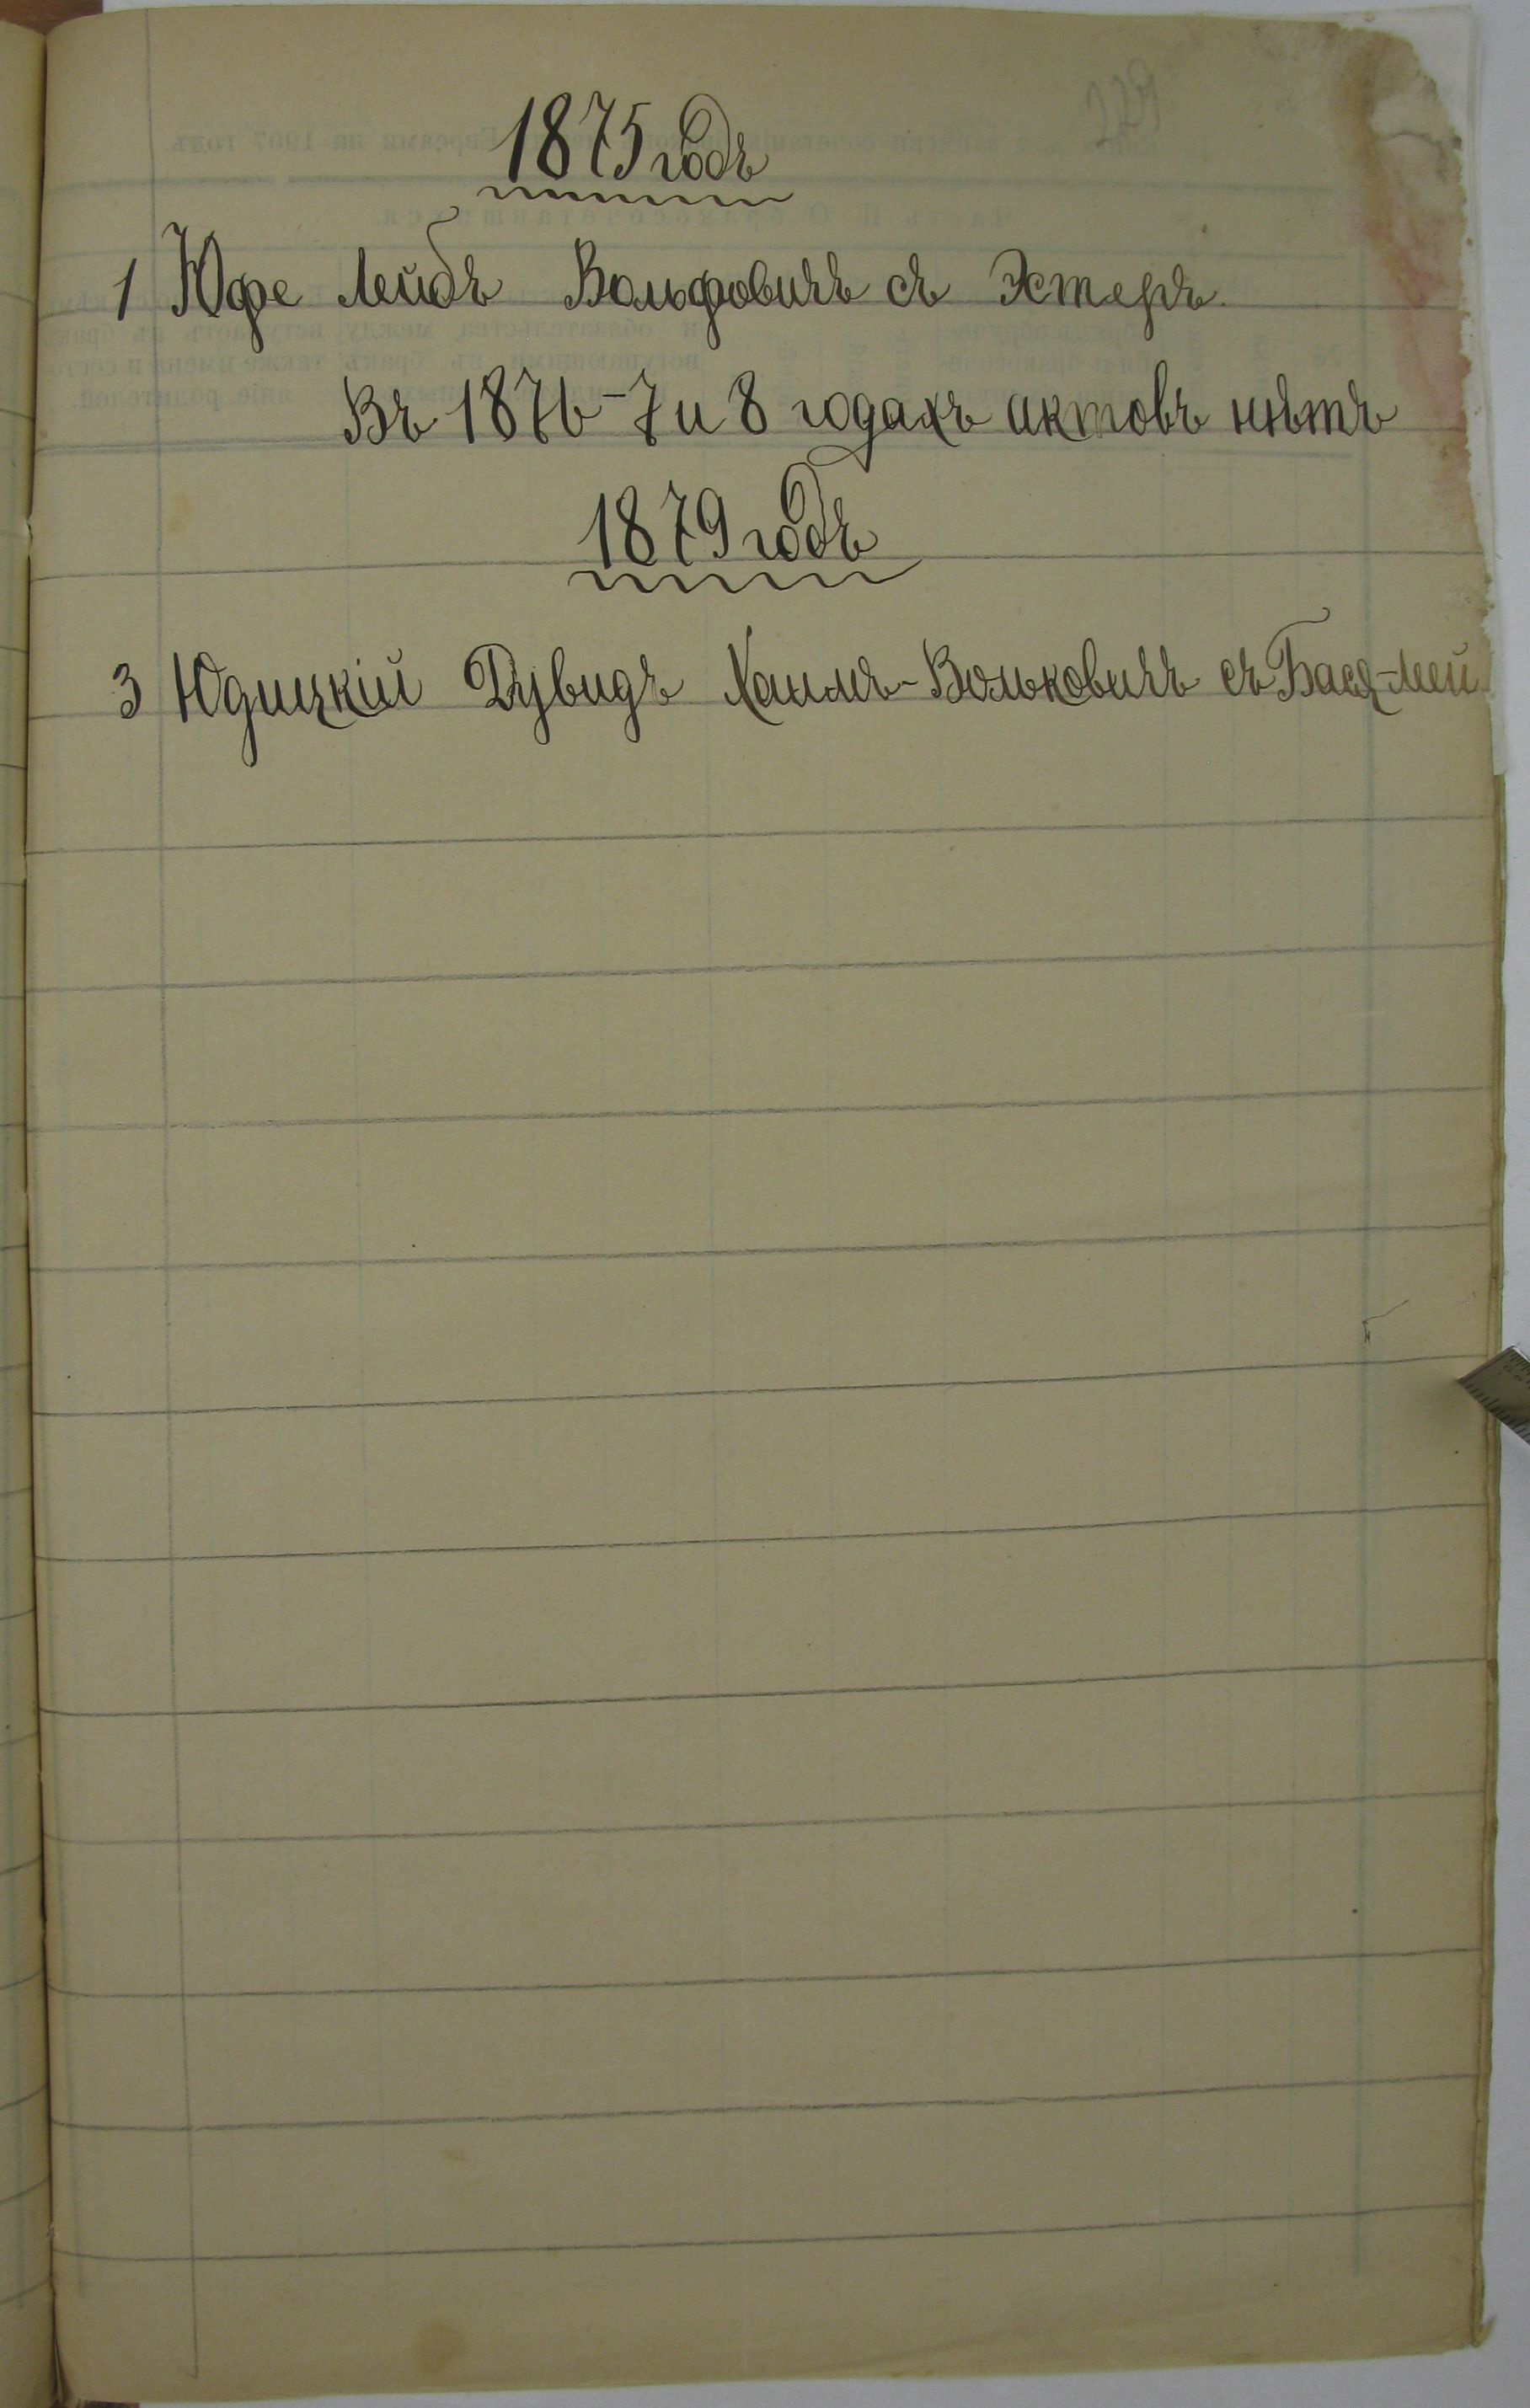 1875 годъ
1 Юфе Лейбъ Вольфовичъ съ Эстеръ
Въ 1876-7 и 8 годахъ актовъ нѣтъ
1879 годъ
3 Юдицкій Дувидъ Хаимъ-Вольковичъ съ Бася-Мей